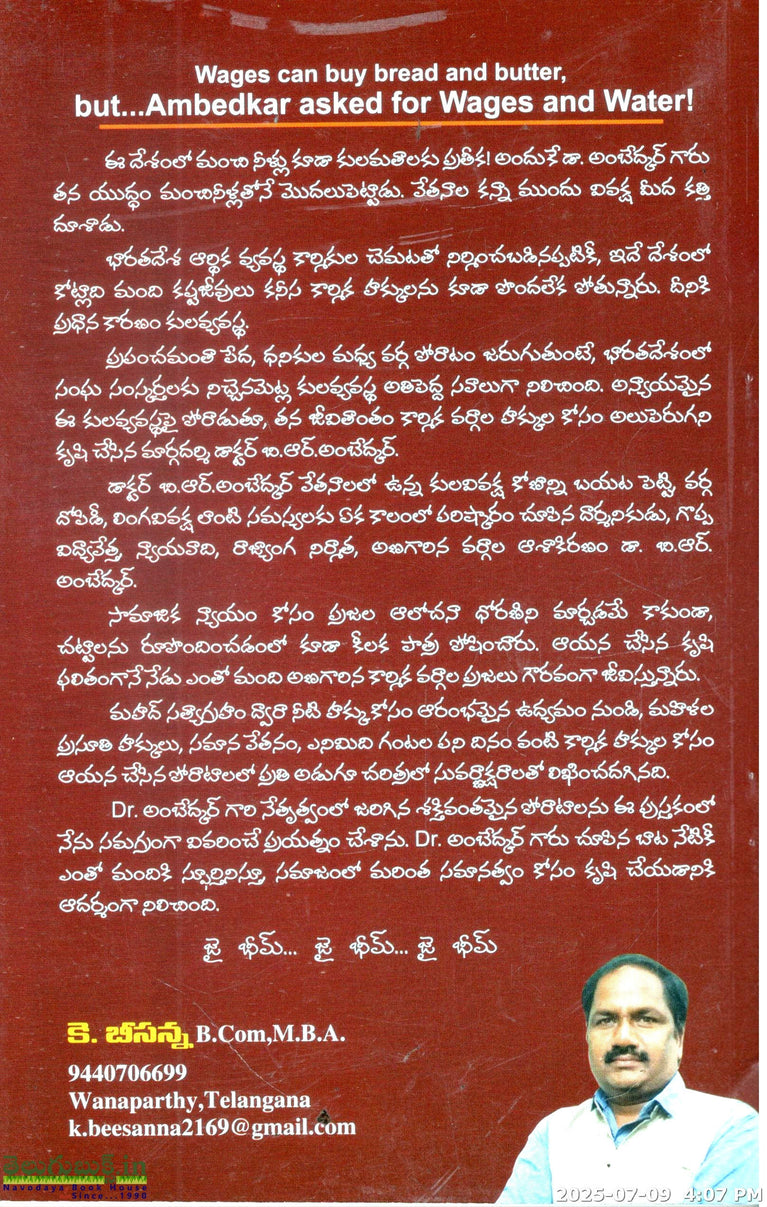 Wages can buy bread and butter,
but...Ambedkar asked for Wages and Water!
ఈ దేశంలో మంచి నీళ్లు కూడా కులమతాలకు ప్రతీక! అందుకే డా. అంబేద్కర్ గారు
తన యుద్ధం మంచినీళ్లతోనే మొదలుపెట్టాడు. వేతనాల కన్నా ముందు వివక్ష మీద కత్తి
దూశాడు.
భారతదేశ ఆర్థిక వ్యవస్థ కార్మికుల చెమటతో నిర్మించబడినప్పటికీ, ఇదే దేశంలో
కోట్లాది మంది కష్టజీవులు కనీస కార్మిక హక్కులను కూడా పొందలేక పోతున్నారు. దీనికి
ప్రధాన కారణం కులవ్యవస్థ.
ప్రపంచమంతా పేద, ధనికుల మధ్య వర్గ పోరాటం జరుగుతుంటే, భారతదేశంలో
సంఘ సంస్కర్తలకు నిచ్చెనమెట్ల కులవ్యవస్థ అతిపెద్ద సవాలుగా నిలిచింది. అన్యాయమైన
ఈ కులవ్యవస్థపై పోరాడుతూ, తన జీవితాంతం కార్మిక వర్గాల హక్కుల కోసం అలుపెరుగని
కృషి చేసిన మార్గదర్శి డాక్టర్ బి.ఆర్.అంబేద్కర్.
డాక్టర్ బి.ఆర్.అంబేద్కర్ వేతనాలలో ఉన్న కులవివక్ష కోణాన్ని బయట పెట్టి, వర్గ
దోపిడీ, లింగవివక్ష లాంటి సమస్యలకు ఏక కాలంలో పరిష్కారం చూపిన దార్శనికుడు, గొప్ప
విద్యావేత్త, న్యాయవాది, రాజ్యాంగ నిర్మాత, అణగారిన వర్గాల ఆశాకిరణం డా. బి.ఆర్.
అంబేద్కర్.
సామాజిక న్యాయం కోసం ప్రజల ఆలోచనా ధోరణిని మార్చడమే కాకుండా,
చట్టాలను రూపొందించడంలో కూడా కీలక పాత్ర పోషించారు. ఆయన చేసిన కృషి
ఫలితంగానే నేడు ఎంతో మంది అణగారిన కార్మిక వర్గాల ప్రజలు గౌరవంగా జీవిస్తున్నారు.
మహద్ సత్యాగ్రహం ద్వారా నీటి హక్కు కోసం ఆరంభమైన ఉద్యమం నుండి, మహిళల
ప్రసూతి హక్కులు, సమాన వేతనం, ఎనిమిది గంటల పని దినం వంటి కార్మిక హక్కుల కోసం
ఆయన చేసిన పోరాటాలలో ప్రతి అడుగూ చరిత్రలో సువర్ణాక్షరాలతో లిఖించదగినది.
Dr. అంబేద్కర్ గారి నేతృత్వంలో జరిగిన శక్తివంతమైన పోరాటాలను ఈ పుస్తకంలో
నేను సమగ్రంగా వివరించే ప్రయత్నం చేశాను. Dr. అంబేద్కర్ గారు చూపిన బాట నేటికీ
ఎంతో మందికి స్ఫూర్తినిస్తూ, సమాజంలో మరింత సమానత్వం కోసం కృషి చేయడానికి
ఆదర్శంగా నిలిచింది.
జై భీమ్... జై భీమ్... జై భీమ్
కె. బీసన్న B.Com,M.B.A.
9440706699
Wanaparthy,Telangana
k.beesanna2169@gmail.com
తెలుగుబుక్.in
Navodaya Book House
Since...1990
2025-07-09 4:07 PM